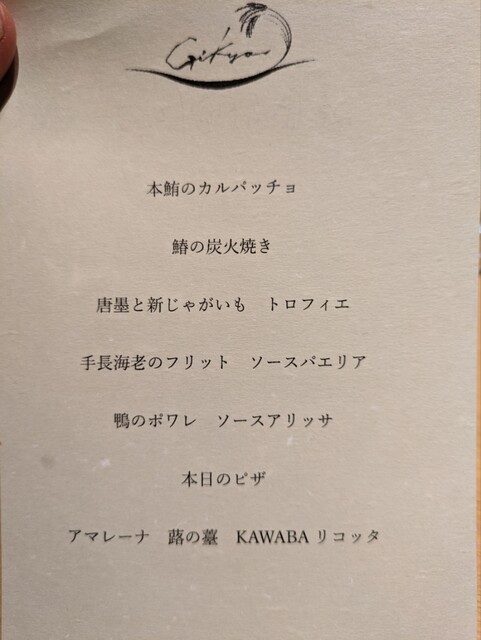 Gikyo
本鮪のカルパッチョ
鰆の炭火焼き
唐墨と新じゃがいも　トロフィエ
手長海老のフリット　ソースパエリア
鴨のポワレ　ソースアリッサ
本日のピザ
アマレーナ　蕗の薹　KAWABA リコッタ